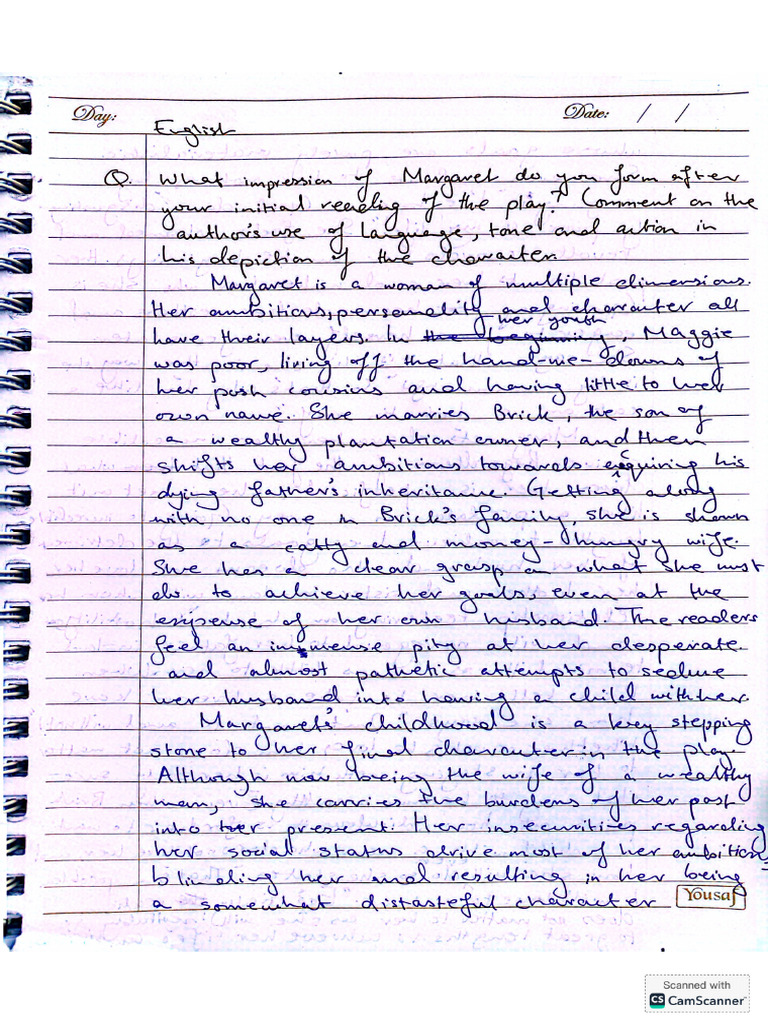 Day:
Date: / /
English
Q. What impression of Margaret do you form after
your initial reading of the play? Comment on the
author's use of language, tone and action in
his depiction of the character.
Margaret is a woman of multiple dimensions.
Her ambitions, personality and character all
have their layers. In the beginning her youth, Maggie
was poor, living off the hand-me-downs of
her posh cousins and having little to her
own name. She marries Brick, the son of
a wealthy plantation owner, and then
shifts her ambitions towards acquiring his
dying father's inheritance. Getting along
with no one in Brick's family, she is shown
as a catty and money-hungry wife.
She has a clear grasp on what she must
do to achieve her goals, even at the
expense of her own husband. The readers
feel an immense pity at her desperate
and almost pathetic attempts to seduce
her husband into having a child with her.
Margaret's childhood is a key stepping
stone to her final character in the play.
Although now being the wife of a wealthy
man, she carries the burdens of her past
into her present. Her insecurities regarding
her social status drive most of her ambitions
blinding her and resulting in her being
a somewhat distasteful character
Yousaf
Scanned with
CS CamScanner